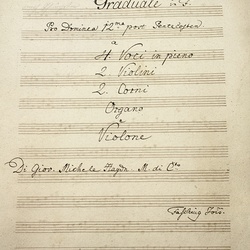 Graduale in F.
Pro Dominica 12ma post Pentecosten
a
4. Voci in pieno
2. Violini
2. Corni
Organo
e
Violone
Di Giov. Michele Haydn M. di C.to